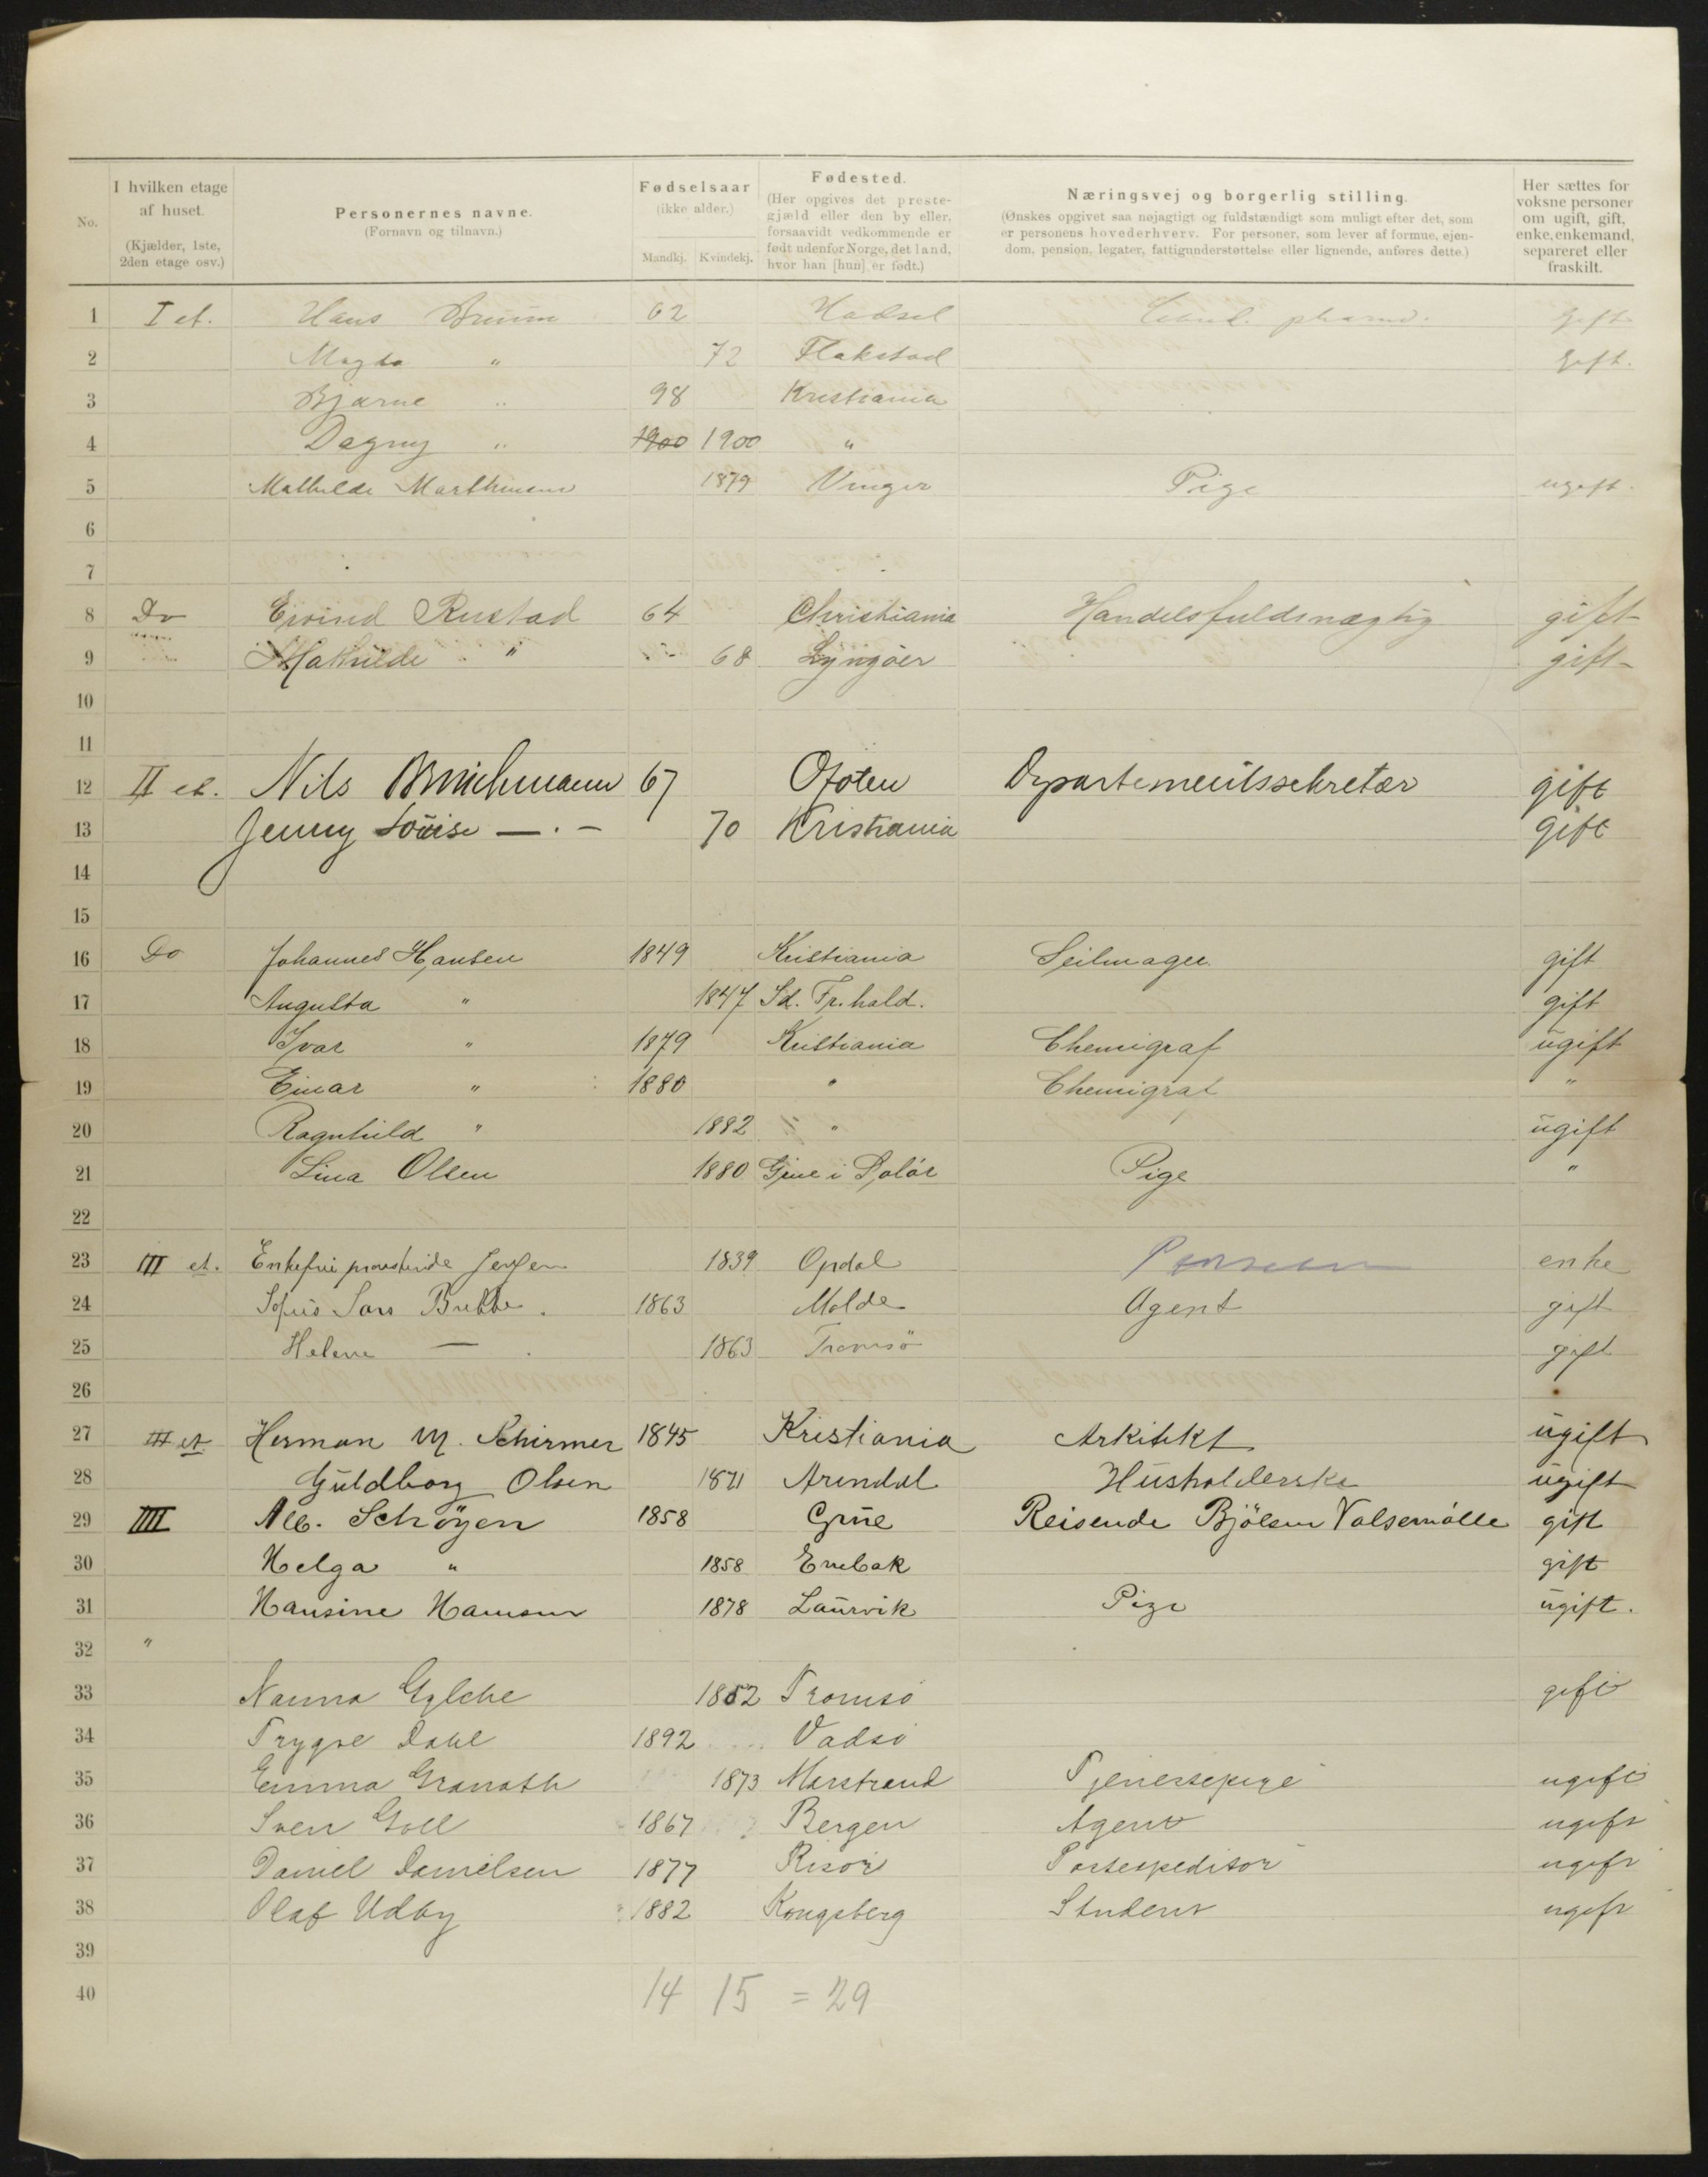 No.
I hvilken etage af huset. (Kjælder, 1ste, 2den etage osv.)
Personernes navne. (Fornavn og tilnavn.)
Fødselsaar (ikke alder.) Mandkj. Kvindekj.
Fødested. (Her opgives det prestegjæld eller den by eller, forsaavidt vedkommende er født udenfor Norge, det land, hvor han [hun] er født.)
Næringsvej og borgerlig stilling. (Ønskes opgivet saa nøjagtigt og fuldstændigt som muligt efter det, som er personens hovederhverv. For personer, som lever af formue, ejendom, pension, legater, fattigunderstøttelse eller lignende, anføres dette.)
Her sættes for voksne personer om ugift, gift, enke, enkemand, separeret eller fraskilt.
1 I et. Hans 62 Hadsel pharm. Gift
2 Magda " 72 Flakstad Gift.
3 Bjarne " 98 Kristiania
4 Dagny " 1900 1900 "
5 Mathilde Marthinsen 1879 Vinger Pige ugift.
6
7
8 Do Eivind Rustad 64 Christiania Handelsfuldmægtig gift
9 Mathilde " 68 Lyngöer gift
10
11
12 II et. Nils 67 Ofoten Departementssekretær gift
13 Jenny Louise — . — 70 Kristiania gift
14
15
16 Do Johannes Hansen 1849 Kristiania Seilmager gift
17 Augusta " 1847 Sd. Fr.hald. gift
18 Ivar " 1879 Kristiania Chemigraf ugift
19 Einar " 1880 " Chemigraf "
20 Ragnhild " 1882 " ugift
21 Lina Olsen 1880 Grue i Solør Pige "
22
23 III et. Enkefru provstinde 1839 Opdal Pension enke
24 Sofus Sars 1863 Molde Agent gift
25 Helene — 1863 Tromsö gift
26
27 III et Herman M. Schirmer 1845 Kristiania Arkitekt ugift
28 Guldborg Olsen 1871 Arendal Husholderske ugift
29 IIII Alb. Schöyen 1858 Grue Reisende Bjölsen Valsemölle gift
30 Helga " 1858 Enebak gift
31 Hansine Hansen 1878 Laurvik Pige ugift.
32 "
33 Nanna 1852 Tromsö gift
34 Trygve Dahl 1892 Vadsö
35 Emma Granath 1873 Marstrand Tjenestepige ugift
36 Sven Goll 1867 Bergen Agent ugift
37 Daniel Danielsen 1877 Risör Postexpeditör ugift
38 Olaf Udby 1882 Kongsberg Student ugift
39
40 14 15 = 29